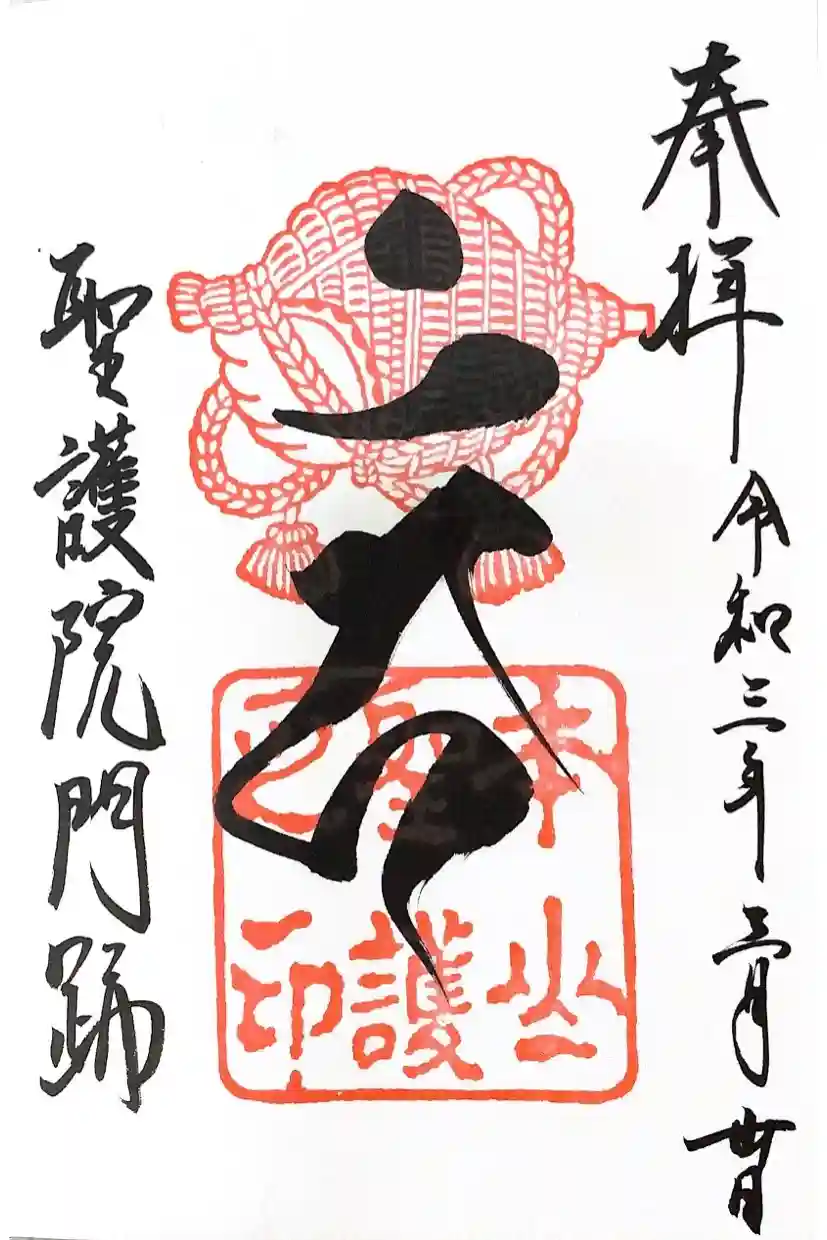 奉拝 令和三年三月廿日
本山
聖護
之印
聖護院門跡